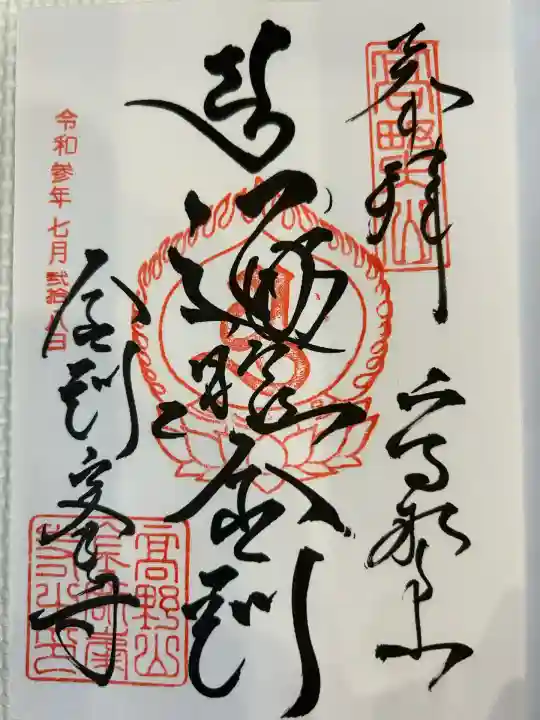 奉拝
高野山
高野山
遍照金剛
金剛峯寺
令和参年七月弐拾八日
高野山